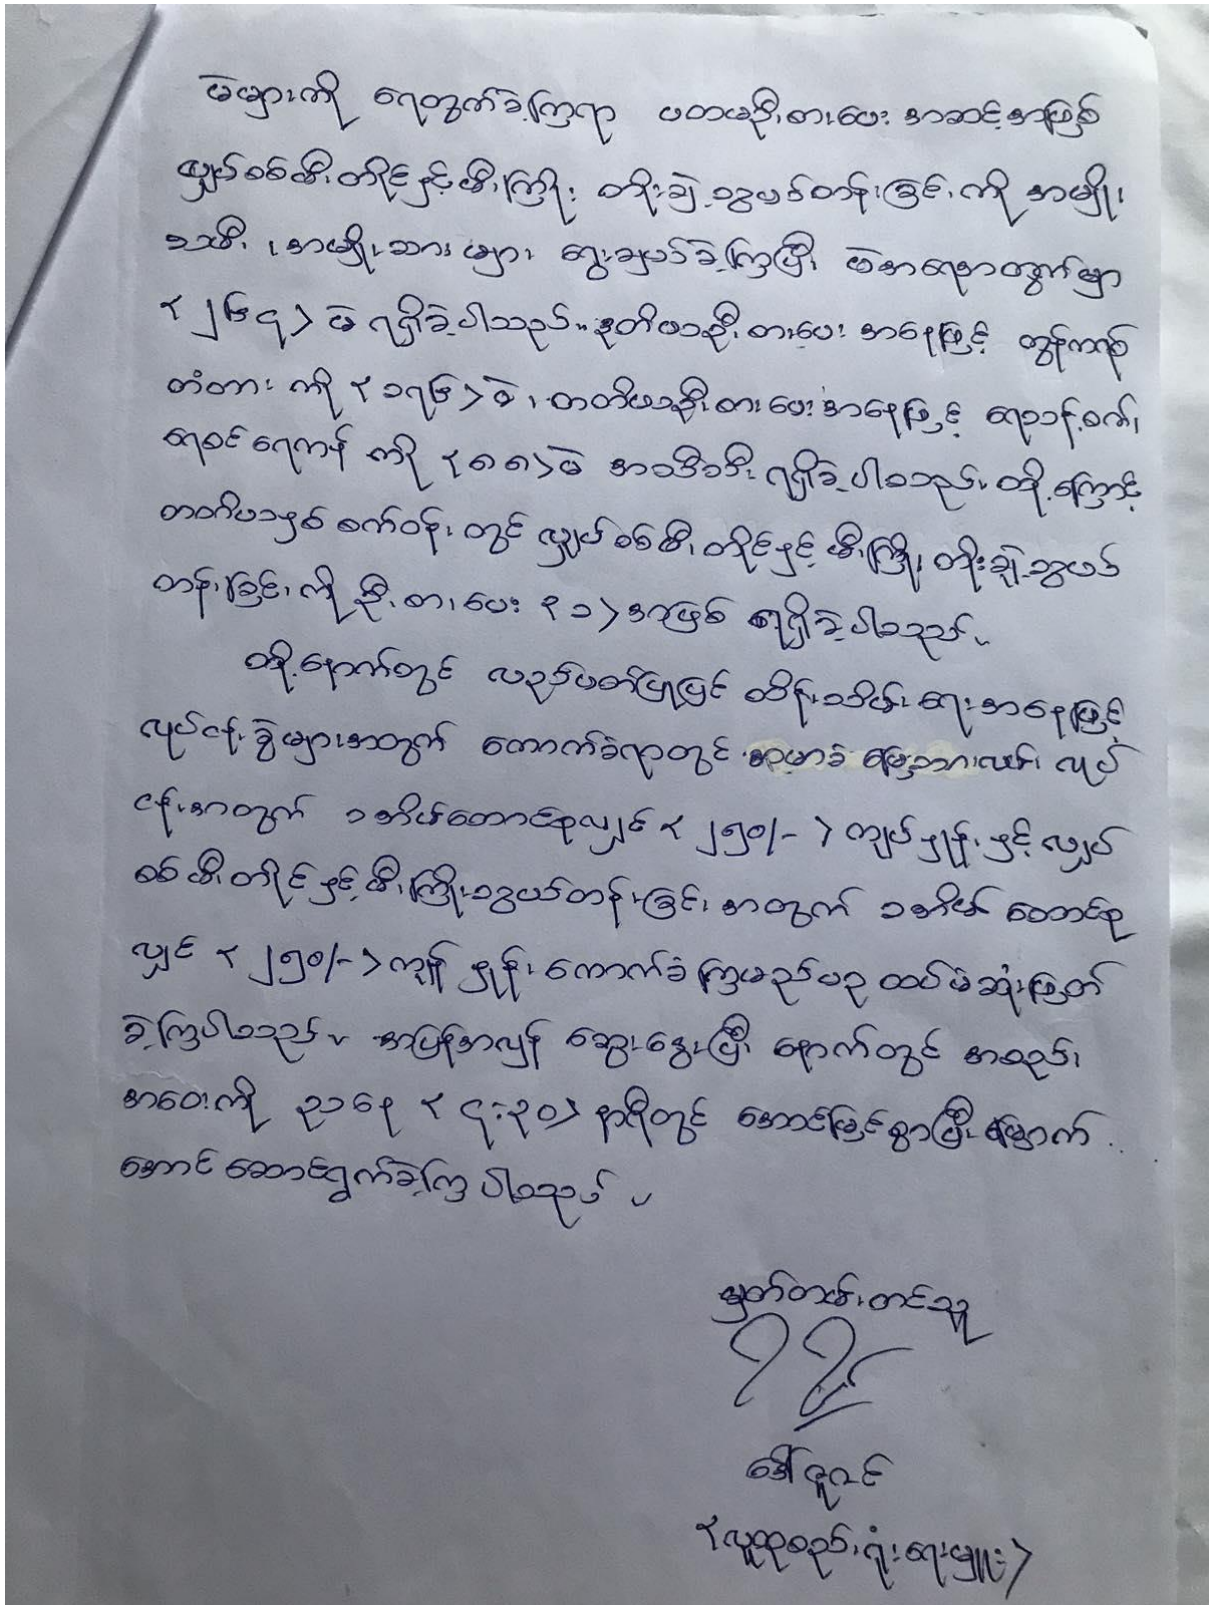 မဲများကို ရေတွက်ခဲ့ကြရာ ပထမဦးစားပေး အဆင့်အဖြစ်
လျှပ်စစ်မီးတိုင်နှင့်မီးကြိုး တိုးချဲ့သွယ်တန်းခြင်းကို အမျိုး
သမီး ၊ အမျိုးသားများ ရွေးချယ်ခဲ့ကြပြီး မဲအရေအတွက်မှာ
< ၂၆၄ > မဲ ရရှိခဲ့ပါသည်။ ဒုတိယဦးစားပေး အနေဖြင့် ကွန်ကရစ်
တံတား ကို < ၁၇၆ > မဲ ၊ တတိယဦးစားပေးအနေဖြင့် ရေသန့်စက်၊
ရေစင်ရေကန် ကို < ၈၈ > မဲ အသီးသီး ရရှိခဲ့ပါသည်။ ထို့ကြောင့်
တတိယနှစ် စက်ဝန်း တွင် လျှပ်စစ်မီးတိုင်နှင့် မီးကြိုး တိုးချဲ့သွယ်
တန်းခြင်းကို ဦးစားပေး < ၁ > အဖြစ် ရရှိခဲ့ပါသည်။
ထို့နောက်တွင် လည်ပတ်ပြုပြင် ထိန်းသိမ်းရေးအနေဖြင့်
လုပ်ငန်းခွဲများအတွက် ကောက်ခံရာတွင် အုဌ်မာခံ မြေသားလမ်း လုပ်
ငန်းအတွက် ၁အိမ်ထောင်စုလျှင် < ၂၅၀/- > ကျပ်နှုန်းနှင့် လျှပ်
စစ်မီးတိုင်နှင့်မီးကြိုးသွယ်တန်းခြင်း အတွက် ၁အိမ် ထောင်စု
လျှင် < ၂၅၀/- > ကျပ် နှုန်း ကောက်ခံကြမည်ဟု ထပ်မံဆုံးဖြတ်
ခဲ့ကြပါသည်။ အပြန်အလှန် ဆွေးနွေးပြီး နောက်တွင် အစည်း
အဝေးကို ညနေ < ၄:၃၀ > နာရီတွင် အောင်မြင်စွာပြီးမြောက်
အောင် ဆောင်ရွက်ခဲ့ကြပါသည် ။
မှတ်တမ်းတင်သူ
ဒေါ်ဇူဇင်
< လူထုစည်းရုံးရေးမှူး >